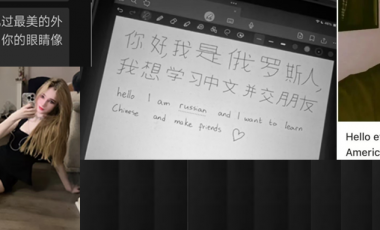 过最美的外
你的眼睛像
你好我是俄罗斯人,
我想学习中文并交朋友
hello I am russian and I want to learn
Chinese and make friends ♡
Hello e
Americ